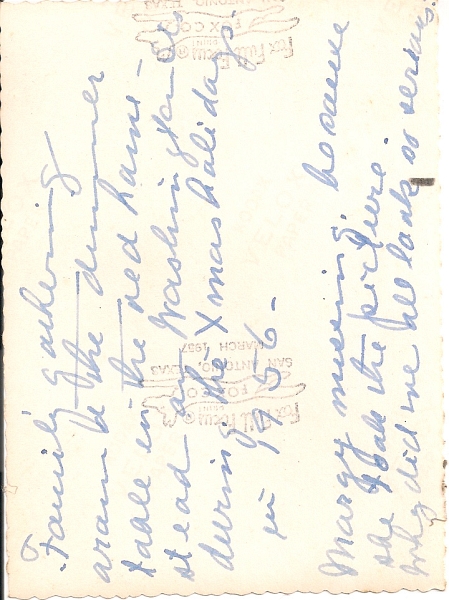 Family gathering
around the dinner
table in the old home-
stead on Washington
during the Xmas holidays
in 1956-
Margy missing, because
she took the picture.
Why did we all look so serious.
FOX CO.
SAN ANTONIO, TEXAS
Fox
FOX CO.
SAN ANTONIO, TEXAS
MARCH 1957